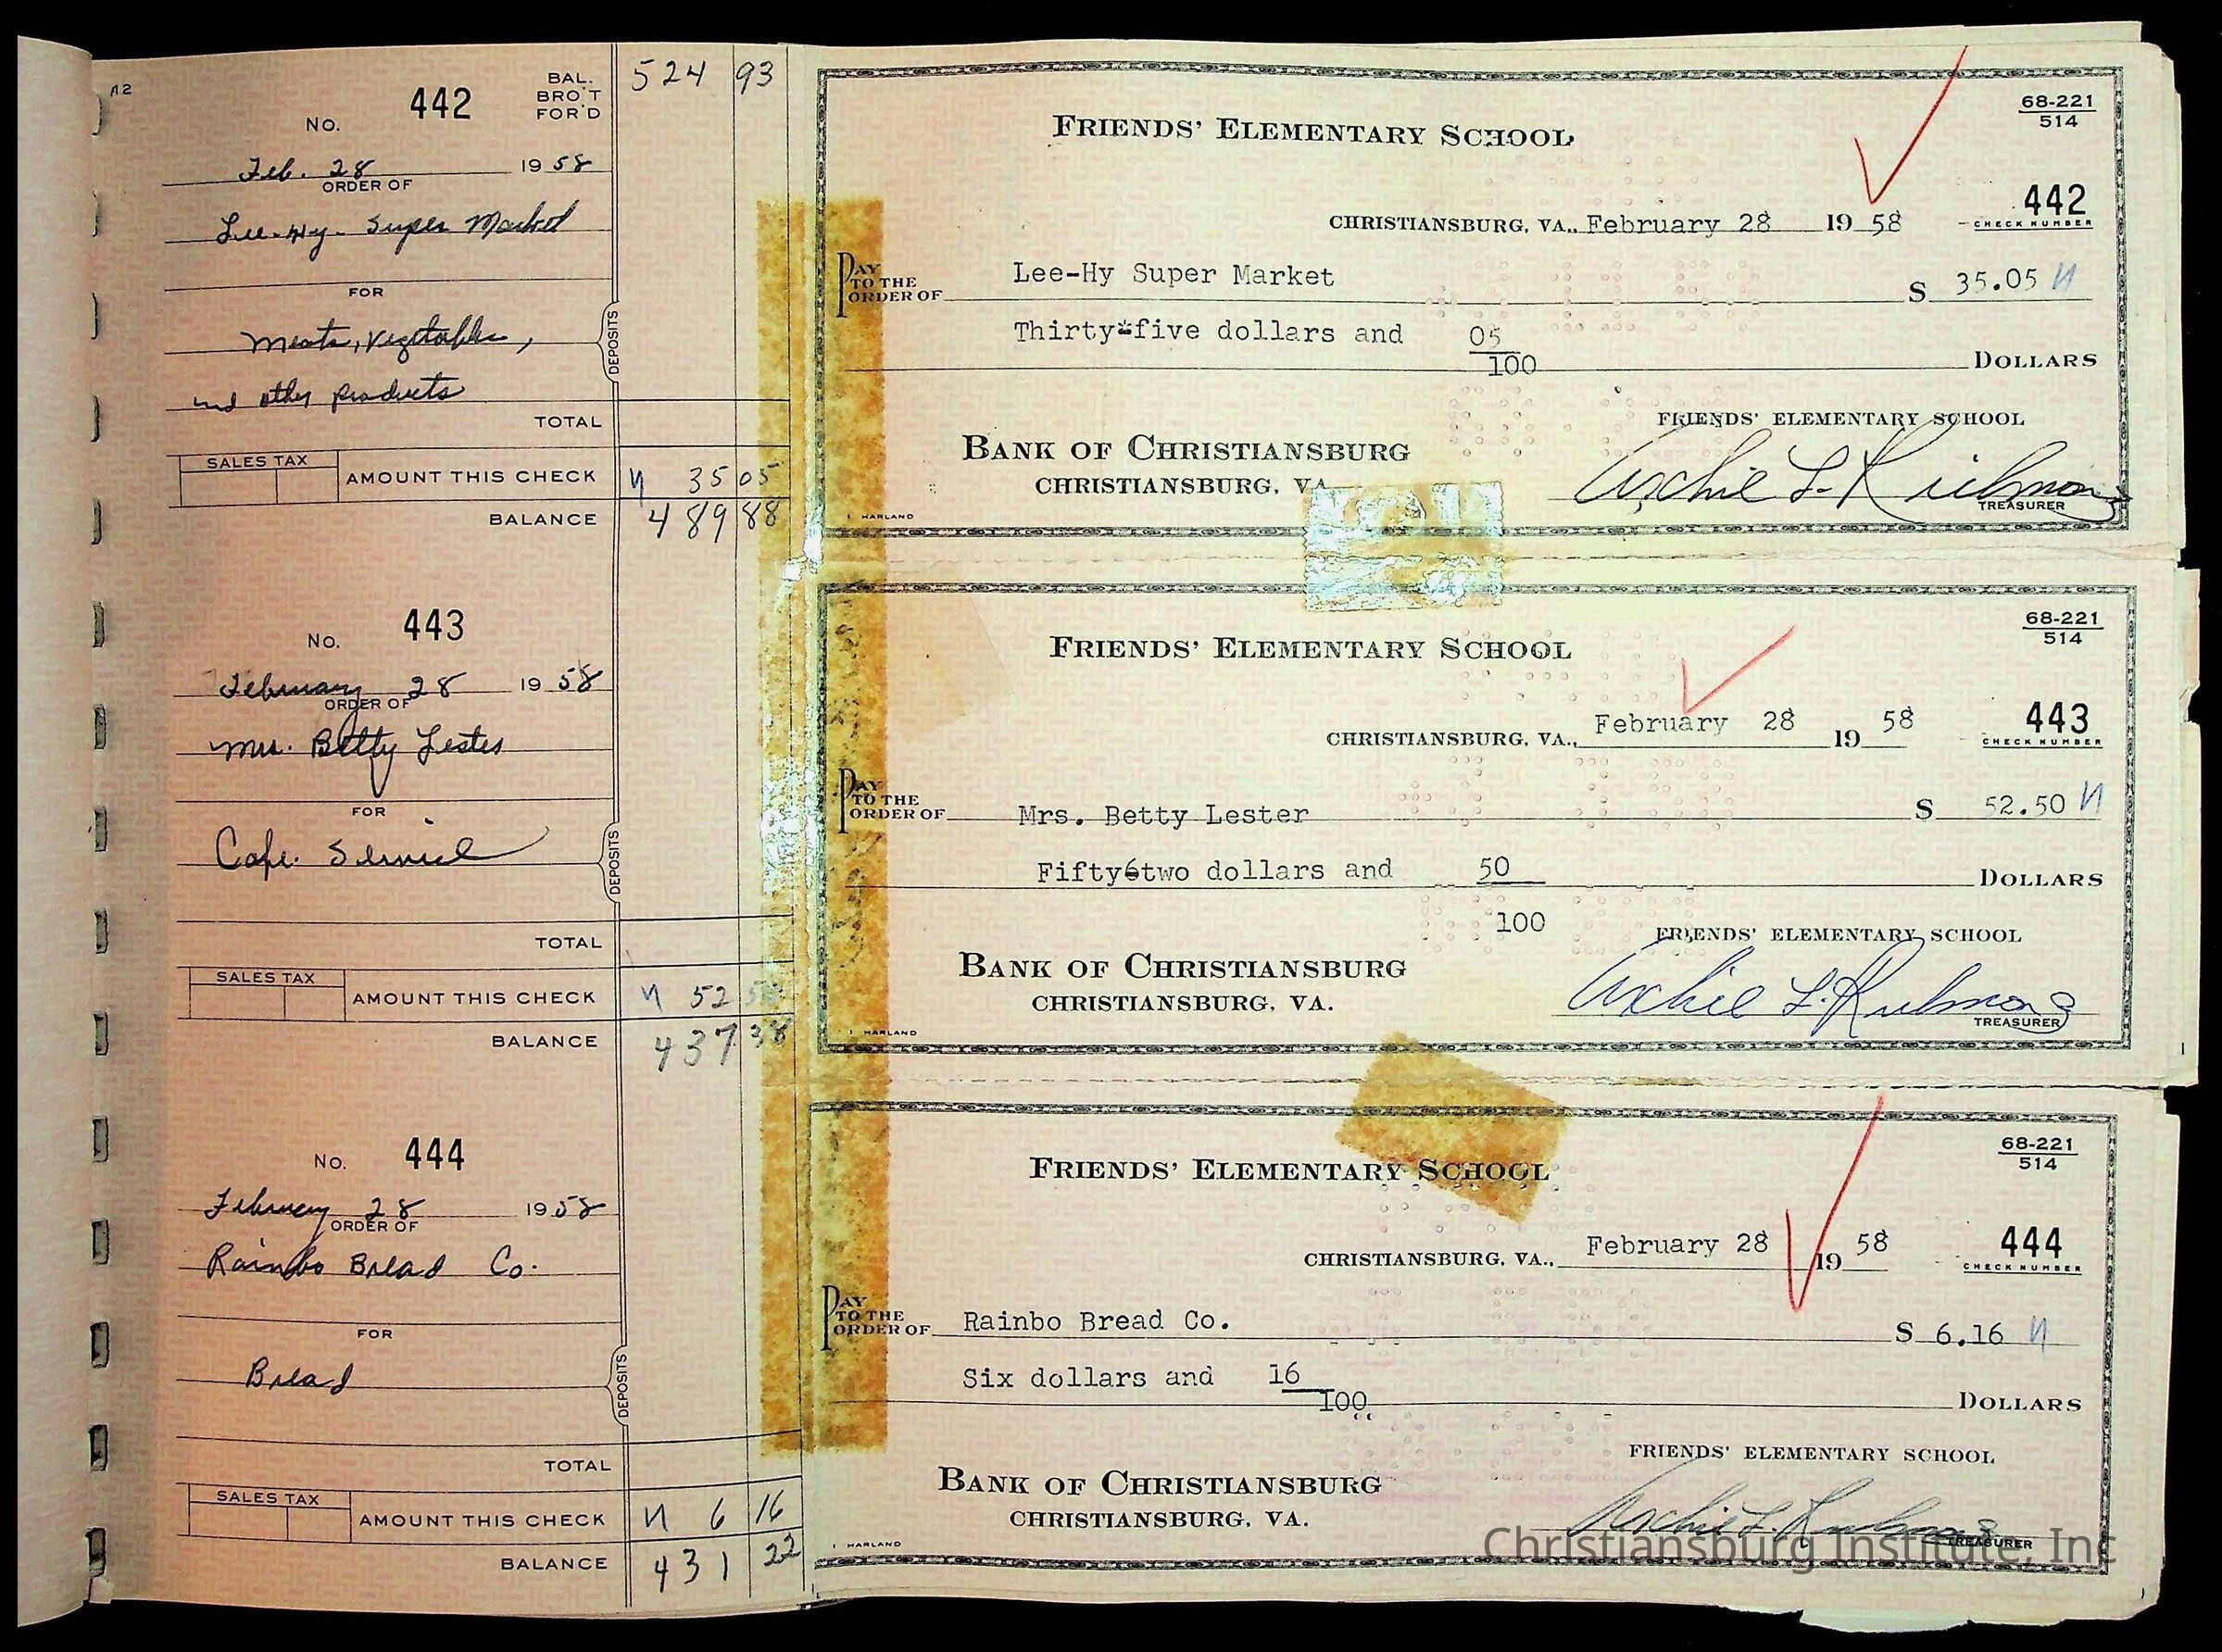 12
No. 442 BAL. BRO'T FOR'D 524 93
Feb. 28 19 58
ORDER OF
Lee-Hy. Super Market
FOR
Meats, Vegetables,
and other products
DEPOSITS
TOTAL
SALES TAX
AMOUNT THIS CHECK 35 05
BALANCE 489 88
FRIENDS' ELEMENTARY SCHOOL
68-221
514
CHRISTIANSBURG, VA., February 28 19 58
442
CHECK NUMBER
PAY TO THE ORDER OF Lee-Hy Super Market $ 35.05
Thirty*five dollars and 05
100 DOLLARS
FRIENDS' ELEMENTARY SCHOOL
BANK OF CHRISTIANSBURG
CHRISTIANSBURG, VA
Archie L.
TREASURER
HARLAND
No. 443
February 28 19 58
ORDER OF
Mrs. Betty Lester
FOR
Cafe. Service
DEPOSITS
TOTAL
SALES TAX
AMOUNT THIS CHECK 52 50
BALANCE 437 38
FRIENDS' ELEMENTARY SCHOOL
68-221
514
CHRISTIANSBURG, VA., February 28 19 58
443
CHECK NUMBER
PAY TO THE ORDER OF Mrs. Betty Lester $ 52.50
Fifty6two dollars and 50 DOLLARS
100
FRIENDS' ELEMENTARY SCHOOL
BANK OF CHRISTIANSBURG
CHRISTIANSBURG, VA.
Archie L.
TREASURER
HARLAND
No. 444
February 28 19 58
ORDER OF
Rainbo Bread Co.
FOR
Bread
DEPOSITS
TOTAL
SALES TAX
AMOUNT THIS CHECK 6 16
BALANCE 431 22
FRIENDS' ELEMENTARY SCHOOL
68-221
514
CHRISTIANSBURG, VA., February 28 19 58
444
CHECK NUMBER
PAY TO THE ORDER OF Rainbo Bread Co. $ 6.16
Six dollars and 16
100 DOLLARS
FRIENDS' ELEMENTARY SCHOOL
BANK OF CHRISTIANSBURG
CHRISTIANSBURG, VA.
Archie L.
TREASURER
HARLAND
Christiansburg Institute, Inc